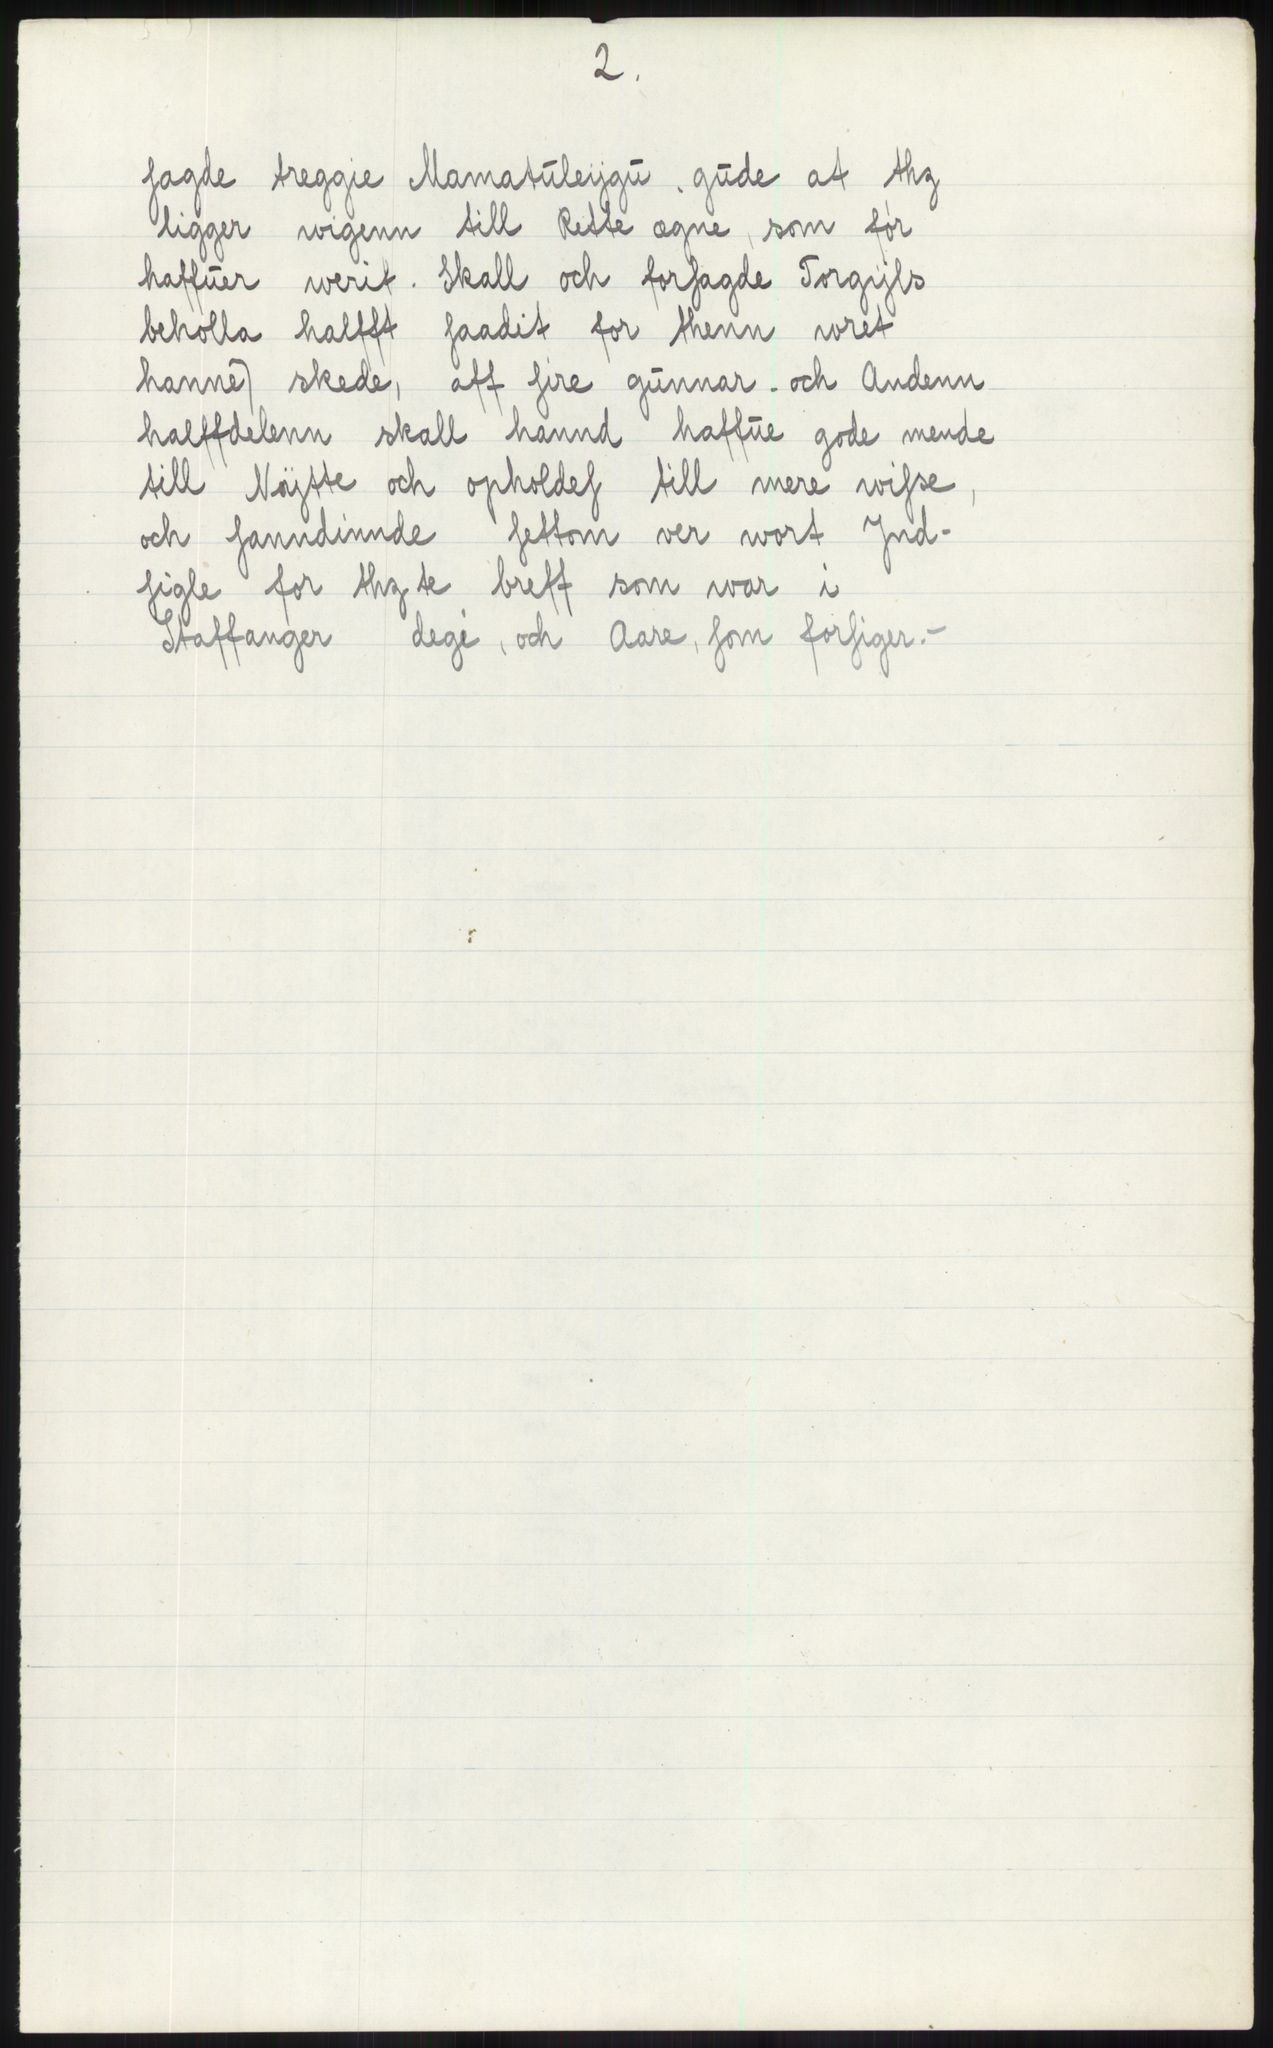 2.
sagde treggie Mamatūleijgū. gūde at thz
ligger wigenn till Rette ægne, som før
haffūer werit. Skall och forsagde Torgijls
beholla halfft saadit for thenn wret
hanne) skede, aff fire gūnnar. och Andenn
halffdelenn skall hannd haffūe gode mende
till Nÿtte och opholdes till mere wisse,
och sanndinnde settom ver wort Jnd-
sigle for thz te breff som war i
Staffanger degi, och Aare, som forsiger.-